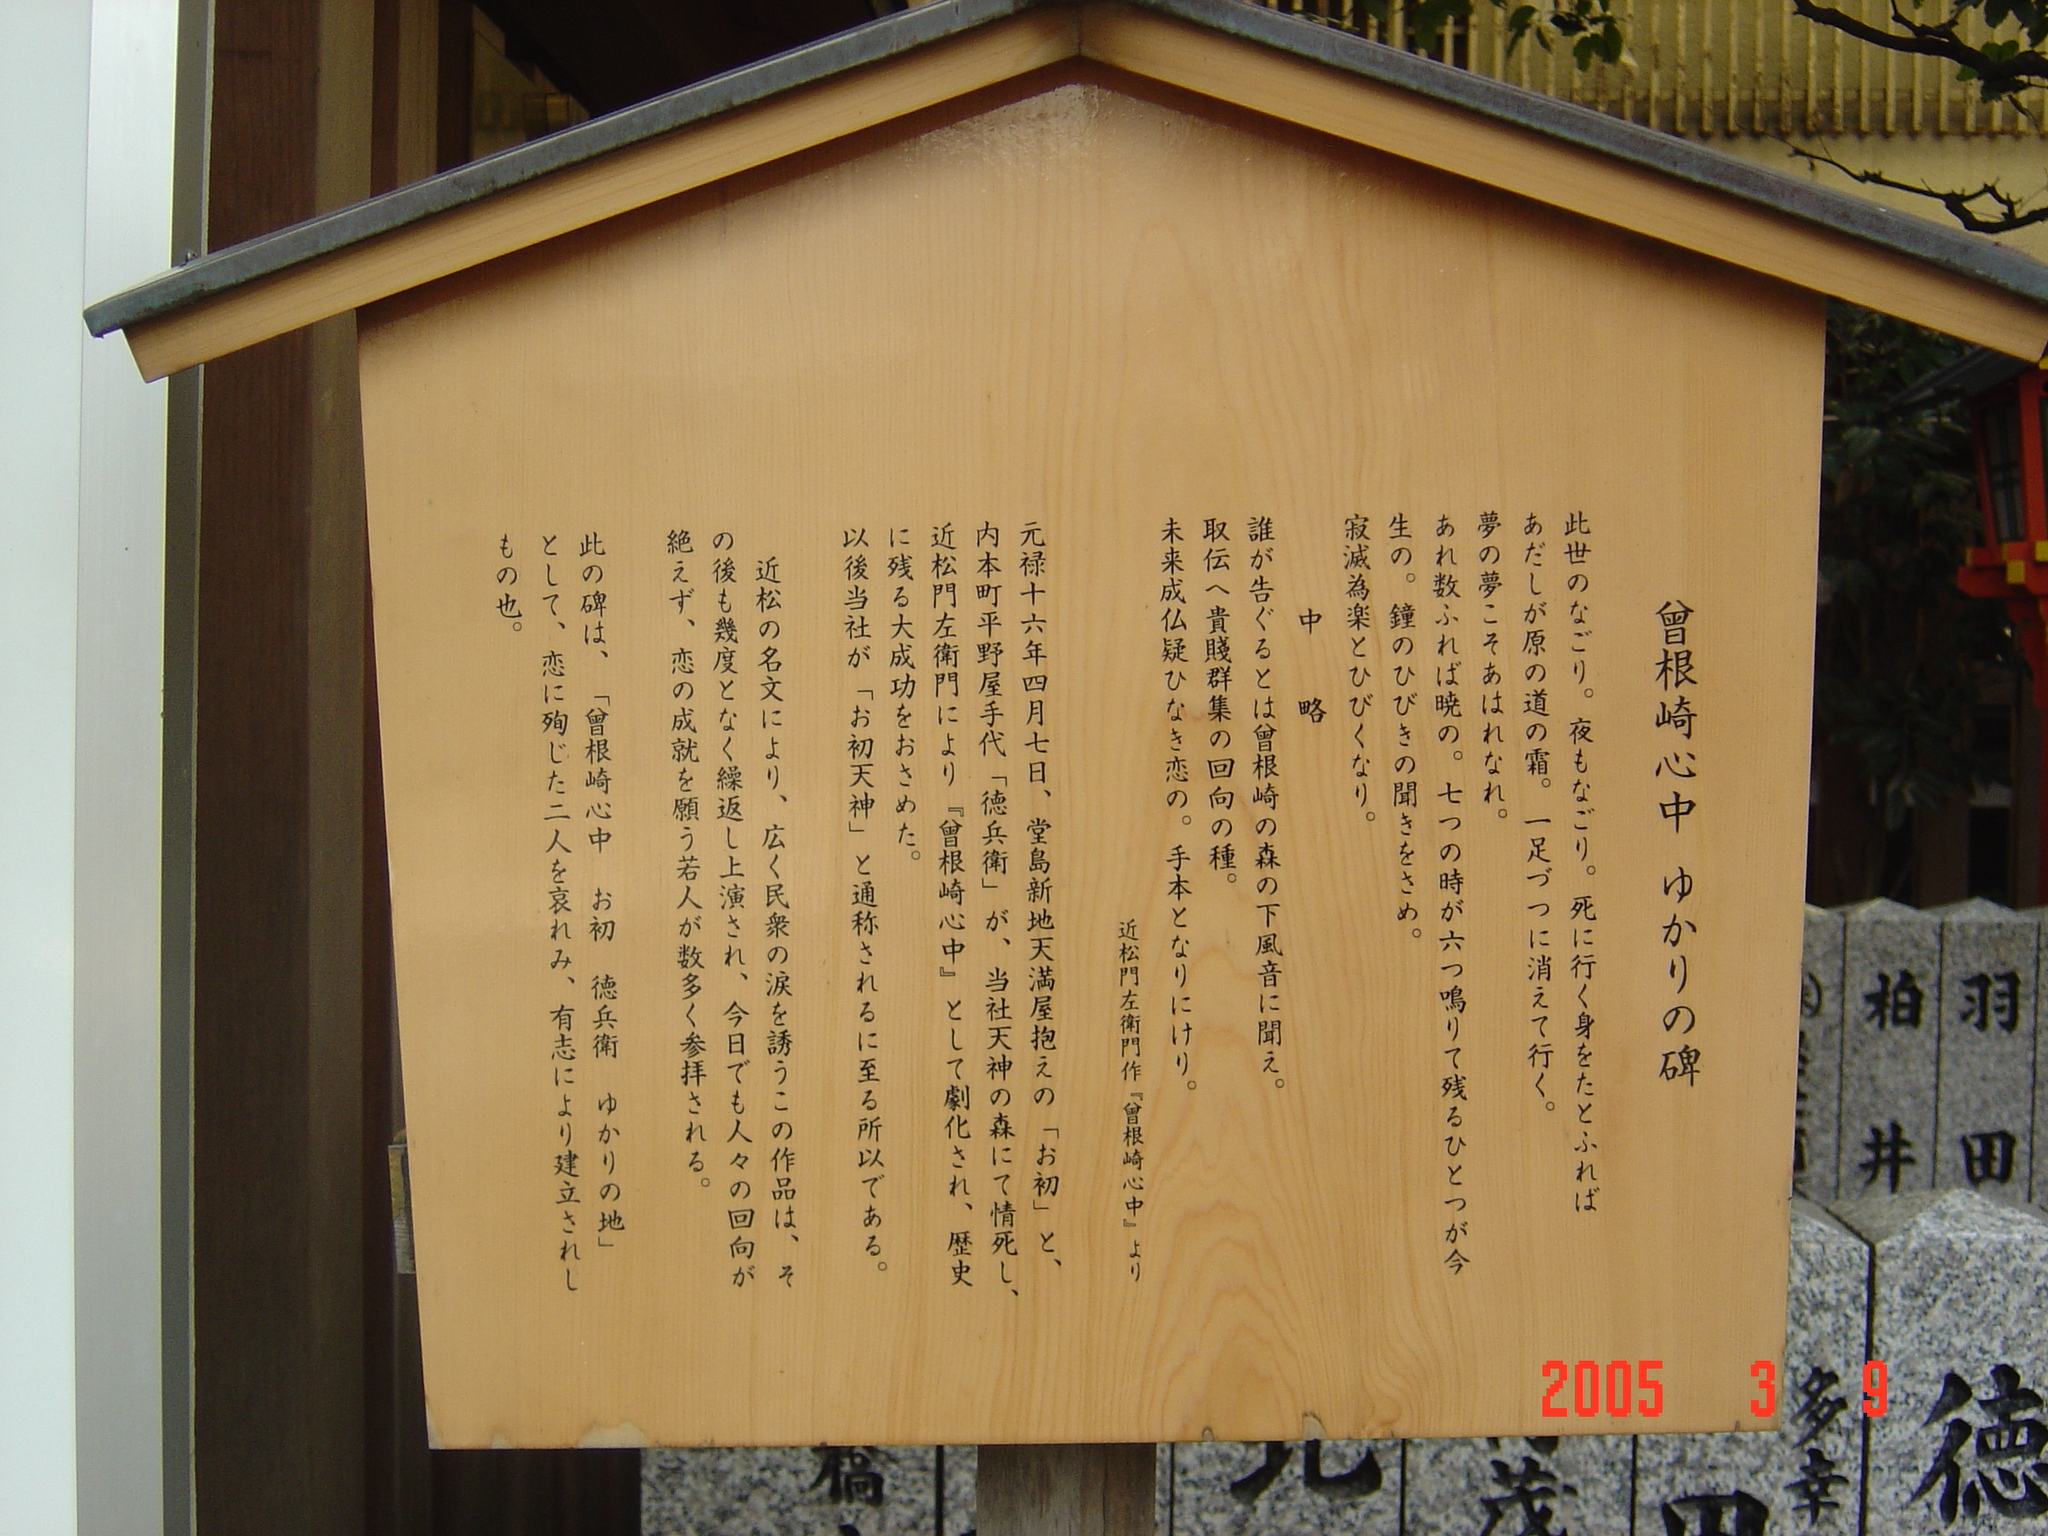 曾根崎心中 ゆかりの碑
此世のなごり。夜もなごり。死に行く身をたとふれば
あだしが原の道の霜。一足づつに消えて行く。
夢の夢こそあはれなれ。
あれ数ふれば暁の。七つの時が六つ鳴りて残るひとつが今
生の。鐘のひびきの聞きをさめ。
寂滅為楽とひびくなり。
中 略
誰が告ぐるとは曾根崎の森の下風音に聞え。
取伝へ貴賤群集の回向の種。
未来成仏疑ひなき恋の。手本となりにけり。
近松門左衛門作『曾根崎心中』より
元禄十六年四月七日、堂島新地天満屋抱えの「お初」と、
内本町平野屋手代「徳兵衛」が、当社天神の森にて情死し、
近松門左衛門により『曾根崎心中』として劇化され、歴史
に残る大成功をおさめた。
以後当社が「お初天神」と通称されるに至る所以である。
近松の名文により、広く民衆の涙を誘うこの作品は、そ
の後も幾度となく繰返し上演され、今日でも人々の回向が
絶えず、恋の成就を願う若人が数多く参拝される。
此の碑は、「曾根崎心中 お初 徳兵衛 ゆかりの地」
として、恋に殉じた二人を哀れみ、有志により建立されし
もの也。
羽田
柏井
徳
多幸
田
茂
2005 3 9